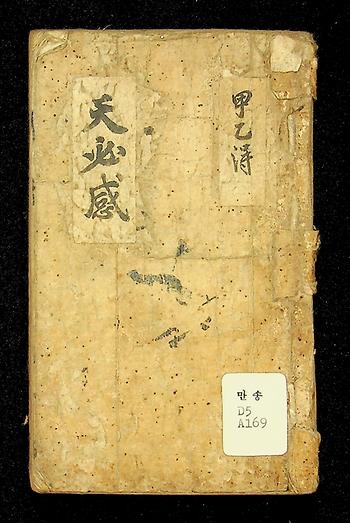 天必感
甲乙濤
만송
D5
A169